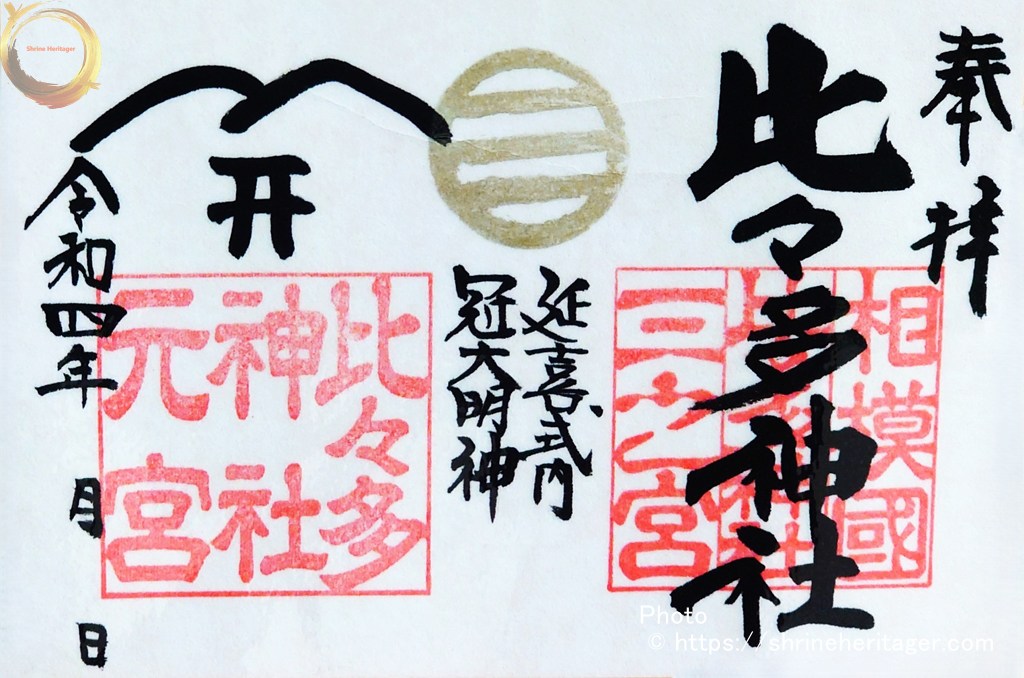 奉拝
比々多神社
相模國
比々多神社
三之宮
延喜式内
冠大明神
开
比々多
神社
元宮
令和四年 月 日
Shrine Heritager
Photo
© https://shrineheritager.com